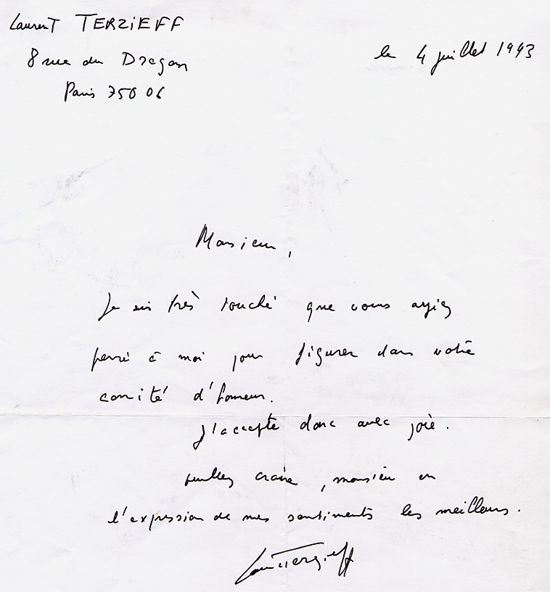 Laurent TERZIEFF
8 rue du Dragon
Paris 75006
le 4 juillet 1993
Monsieur,
Je suis très touché que vous ayiez
pensé à moi pour figurer dans votre
comité d'honneur.
J'accepte donc avec joie.
veuillez croire, monsieur en
l'expression de mes sentiments les meilleurs.
Laurent Terzieff